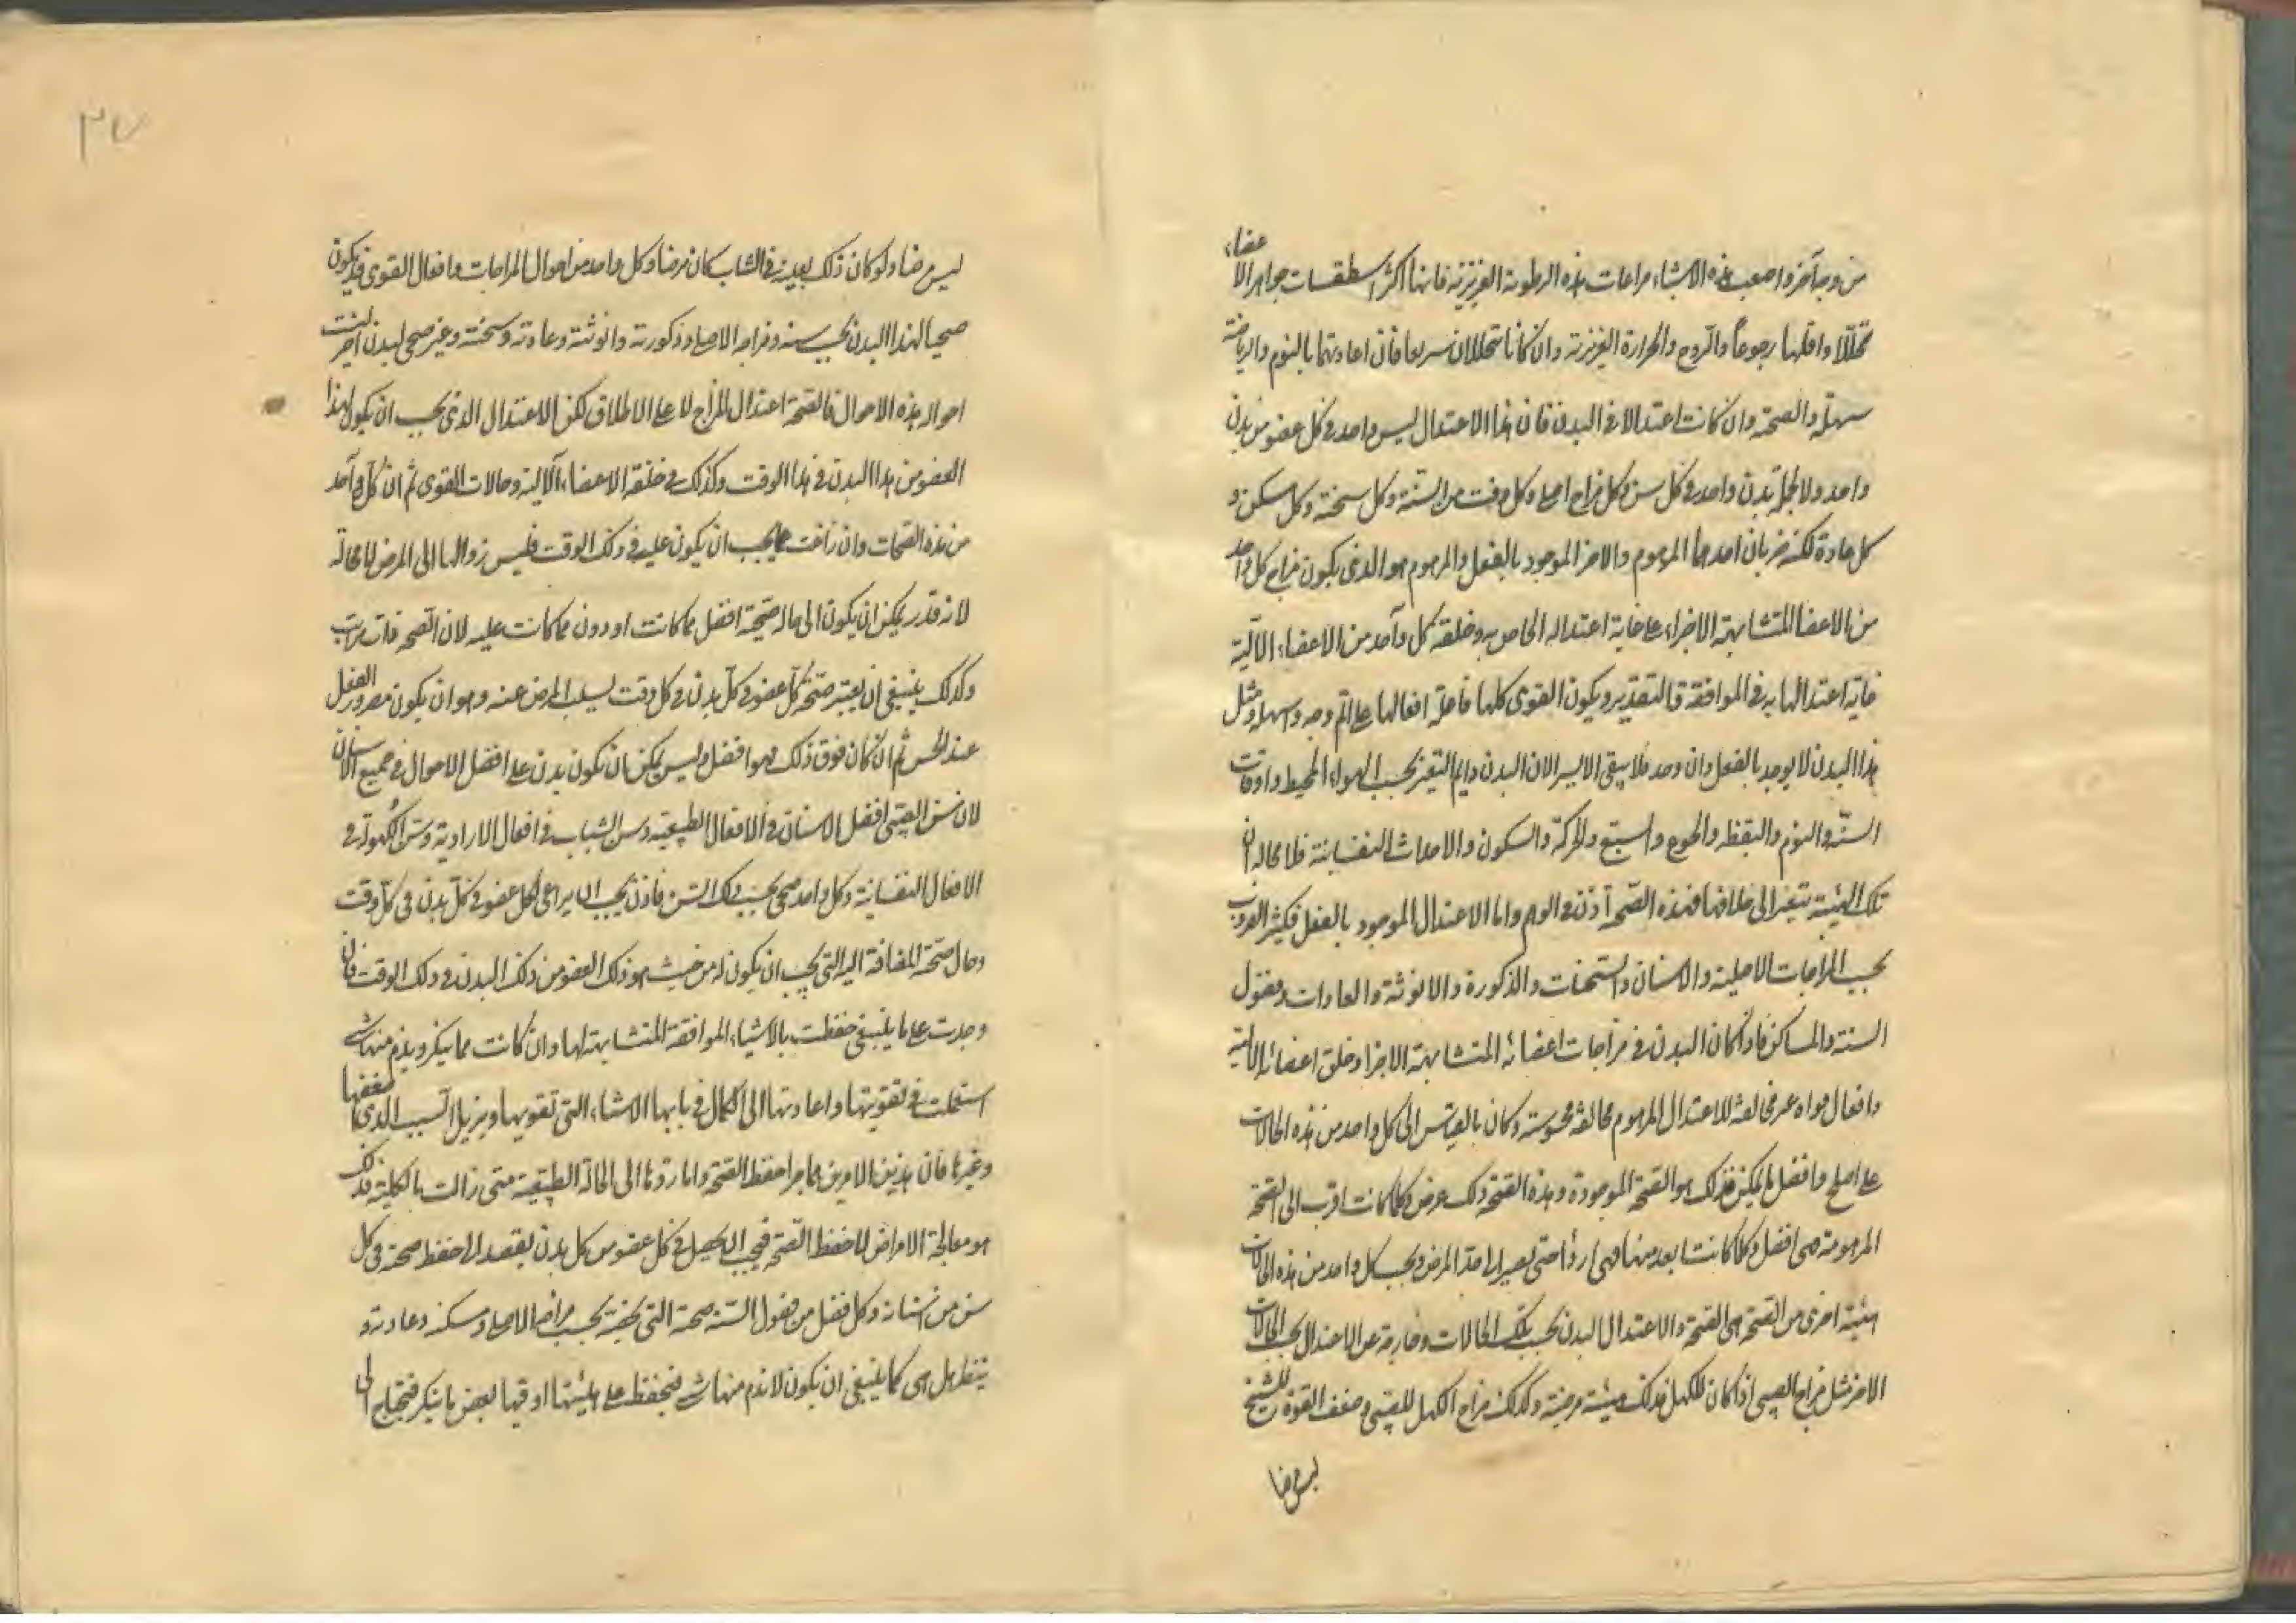 من وجه آخر واصعب هذه الاشياء مراعات هذه الرطوبة الغريزية فانها اكثر اسطقسات جواهر الاعضاء
تحللا واقلها رجوعاً والروح والحرارة الغريزية وان كانا يتحللان سريعا فان اعادتهما بالنوم والرياضة
سهلة والصحة وان كانت اعتدالا فى البدن فان هذا الاعتدال ليس واحد فى كل عضو من بدن
واحد ولا لجملة بدن واحد فى كل سن وكل مزاج اصلى وكل وقت من السنة وكل سحنة وكل مسكن و
كل عادة لكنه ضربان احدهما الموهوم والاخر الموجود بالفعل والموهوم هو الذى يكون مزاج كل واحد
من الاعضا المتشابهة الاجزاء على غاية اعتداله الخاص به وخلقة كل واحد من الاعضاء الآلية
غاية اعتدالها به فى الموافقة والتقدير ويكون القوى كلها فاعلة افعالها على اتم وجه واسهله ومثل
هذا البدن لا يوجد بالفعل وان وجد فلا يبقى الا يسير الان البدن دايم التغير بحسب الهواء المحيط واوقات
السنة والنوم واليقظه والجوع والشبع والحركة والسكون والاحداث النفسانية فلا محاله ان
تلك الهيئة تتغير الى خلافها فهذه الصحة اذن فى الوهم واما الاعتدال الموجود بالفعل فكثير الضروب
بحسب المزاجات الاصلية والاسنان والسحنات والذكورة والانوثة والعادات وفصول
السنة والمساكن فاذا كان البدن فى مزاجات اعضائه المتشابهة الاجزا وخلق اعضائه الآلية
وافعال قواه غير مخالفة للاعتدال الموهوم مخالفة محسوسة وكان بالقياس الى كل واحد من هذه الحالات
على اصلح وافضل ما يمكن فذلك هو الصحة الموجودة وهذه الصحة ذلك عرض وكلما كانت اقرب الى الصحة
الموهومة هى افضل وكلما كانت ابعد منها فهى اردأ حتى يصير الى حد المرض وبحسب كل واحد من هذه الحالات
هيئة اخرى من الصحة هى الصحة والاعتدال البدن بحسب تلك الحالات وخارجة عن الاعتدال بحسب الحالات
الاخر مثل مزاج الصبى اذا كان للكهل فذلك هيئة مرضية وكذلك مزاج الكهل للصبى وضعف القوة للشيخ
ليس مرضا
٣٧
ليس مرضا ولو كان ذلك بعينه فى الشاب كان مرضا وكل واحد من احوال المزاجات وافعال القوى قد يكون
صحيا لهذا البدن بحسب سنه ومزاجه الاصلى وذكورته وانوثته وعادته وسحنته وغير صحى لبدن آخر ليست
احواله هذه الاحوال فالصحة اعتدال المزاج لا على الاطلاق لكن الاعتدال الذى يجب ان يكون لهذا
العضو من هذا البدن فى هذا الوقت وكذلك فى خلقة الاعضاء الآلية وحالات القوى ثم ان كل واحد
من هذه الصحات وان زاغت عما يجب ان يكون عليه فى ذلك الوقت فليس زوالها الى المرض لا محالة
لانه قد يمكن ان يكون الى حاله صحية افضل مما كانت او دون مما كانت عليه لان الصحة ذات مراتب
وكذلك ينبغى ان يعتبر صحة كل عضو فى كل بدن فى كل وقت بسلب المرض عنه وهو ان يكون ضرور الفعل
عند الحس ثم ان كان فوق ذلك فهو افضل وليس يمكن ان يكون بدن على افضل الاحوال فى جميع الاسنان
لان سن الصبى افضل الاسنان فى الافعال الطبيعية وسن الشباب فى افعال الارادية وسن الكهولة فى
الافعال النفسانية وكل واحد صحى بحسب ذلك السن فاذن يجب ان يراعى لكل عضو فى كل بدن فى كل وقت
وحال صحة المضافة اليه التى يجب ان يكون له من حيث هو ذلك العضو من ذلك البدن فى ذلك الوقت فان
وجدت على ما ينبغى حفظت بالاشياء الموافقة المتشابهة لها وان كانت مما ينكر ويذم منها شى
استعملت فى تقويتها واعادتها الى الكمال فى بابها الاشياء التى تقويها ويزيل السبب الذى اضعفها
وغيرها فان هذين الامرين هما جزا حفظ الصحة واما ردها الى الحالة الطبيعية متى زالت بالكلية فذلك
هو معالجة الامراض لا حفظ الصحة فيجب ان يحصل فى كل عضو من كل بدن يقصد الى حفظ صحته فى كل
سن من اسنانه وكل فصل من فصول السنة صحة التى تخصه بحسب مزاجه الاصلى ومسكنه وعادته و
ينظر هل هى كما ينبغى ان يكون لا يذم منها شى فيحفظ على هيئتها او فيها بعض ما ينكر فيحتاج الى